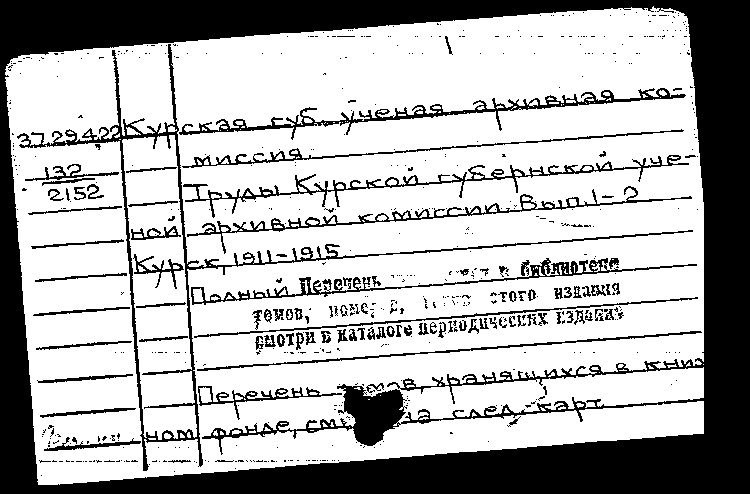 37.29.4.22 Курская губ. ученая архивная ко-
миссия.
132
2152
Труды Курской губернской уче-
ной архивной комиссии. Вып. 1-2
Курск, 1911-1915
Полный Перечень в библиотеке
томов, этого издания
смотри в каталоге периодических изданий
Перечень томов, хранящихся в книж
ном фонде, на след. карт